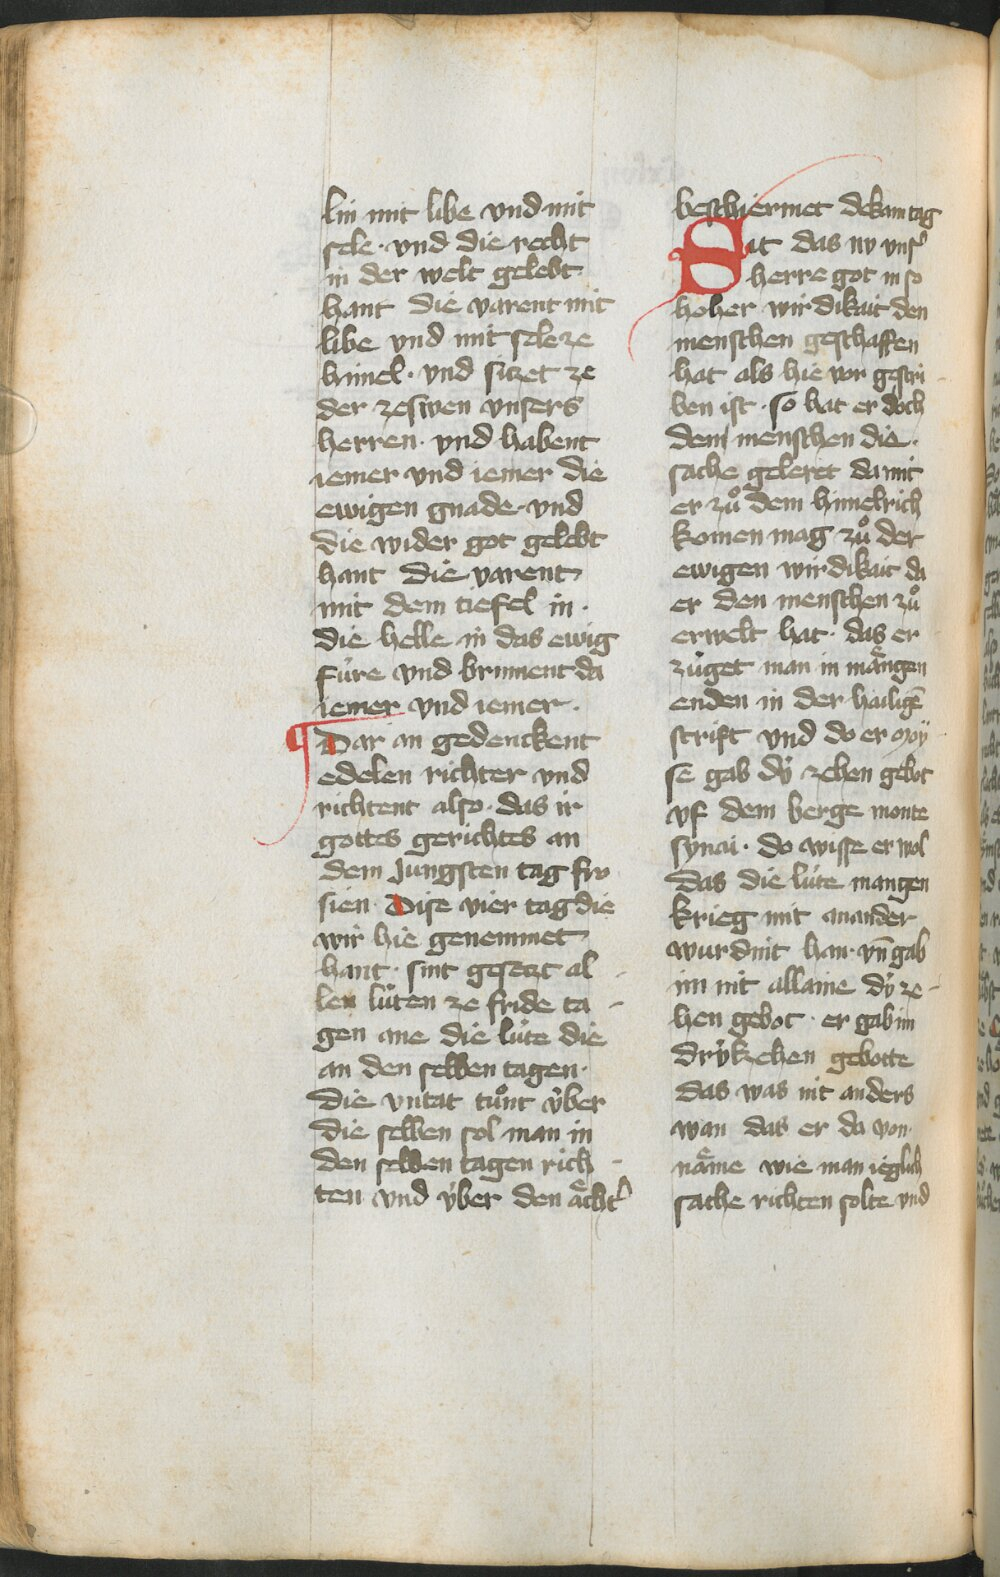 lin mit libe vnd mit
sele · vnd die recht
in der welt gelebt
hant die varent mit
libe vnd mit sele ze
himel · vnd sitzet ze
der zeswen vnsers
herren · vnd habent
iemer vnd iemer die
ewigen gnade · vnd
die wider got gelebt
hant die varent
mit dem tiefel in ·
die helle in das ewig
fúre vnd brinnent da
iemer vnd iemer ·
¶ Dar an gedenckent
edelen richter vnd
richtent also · das ir
gottes gerichtes an
dem Jungsten tag fro
sien · Dise vier tag die
wir hie genemmet
hant · sint gesetzt al
len lúten ze fride ta
gen ane die lúte die
an den selben tagen ·
die vntat tuͦnt v́ber
die selben sol man in
den selben tagen rich
ten vnd v́ber den aͤcht͛
beschiermet dekain tag
Sit das nv vns͛
herre got in so
hoher wirdikait den
menschen geschaffen
hat als hie vor gescri
ben ist · so hat er doch
dem menschen die ·
sache geleret da mit
er zuͦ dem himelrich
komen mag zuͦ der
ewigen wirdikait da
er den menschen zuͦ
erwelt hat · das er
zúget man in maͤngen
enden in der hailigē
scrift vnd do er moÿ
se gab dv́ zehen gebot
vf dem berge monte
synai · do wisse er wol
das die lúte mangen
krieg mit ainander
wurdint han · vn̄ gab
im nit allaine dv́ ze
hen gebot · er gab im
drv́kzehen gebotte
das was nit anders
wan das er da von
naͤme wie man ieglich
sache richten solte vnd